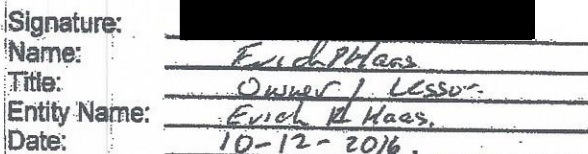 Signature:
Name: Erich R Haas
Title: Owner / Lessor.
Entity Name: Erich R Haas.
Date: 10-12-2016.